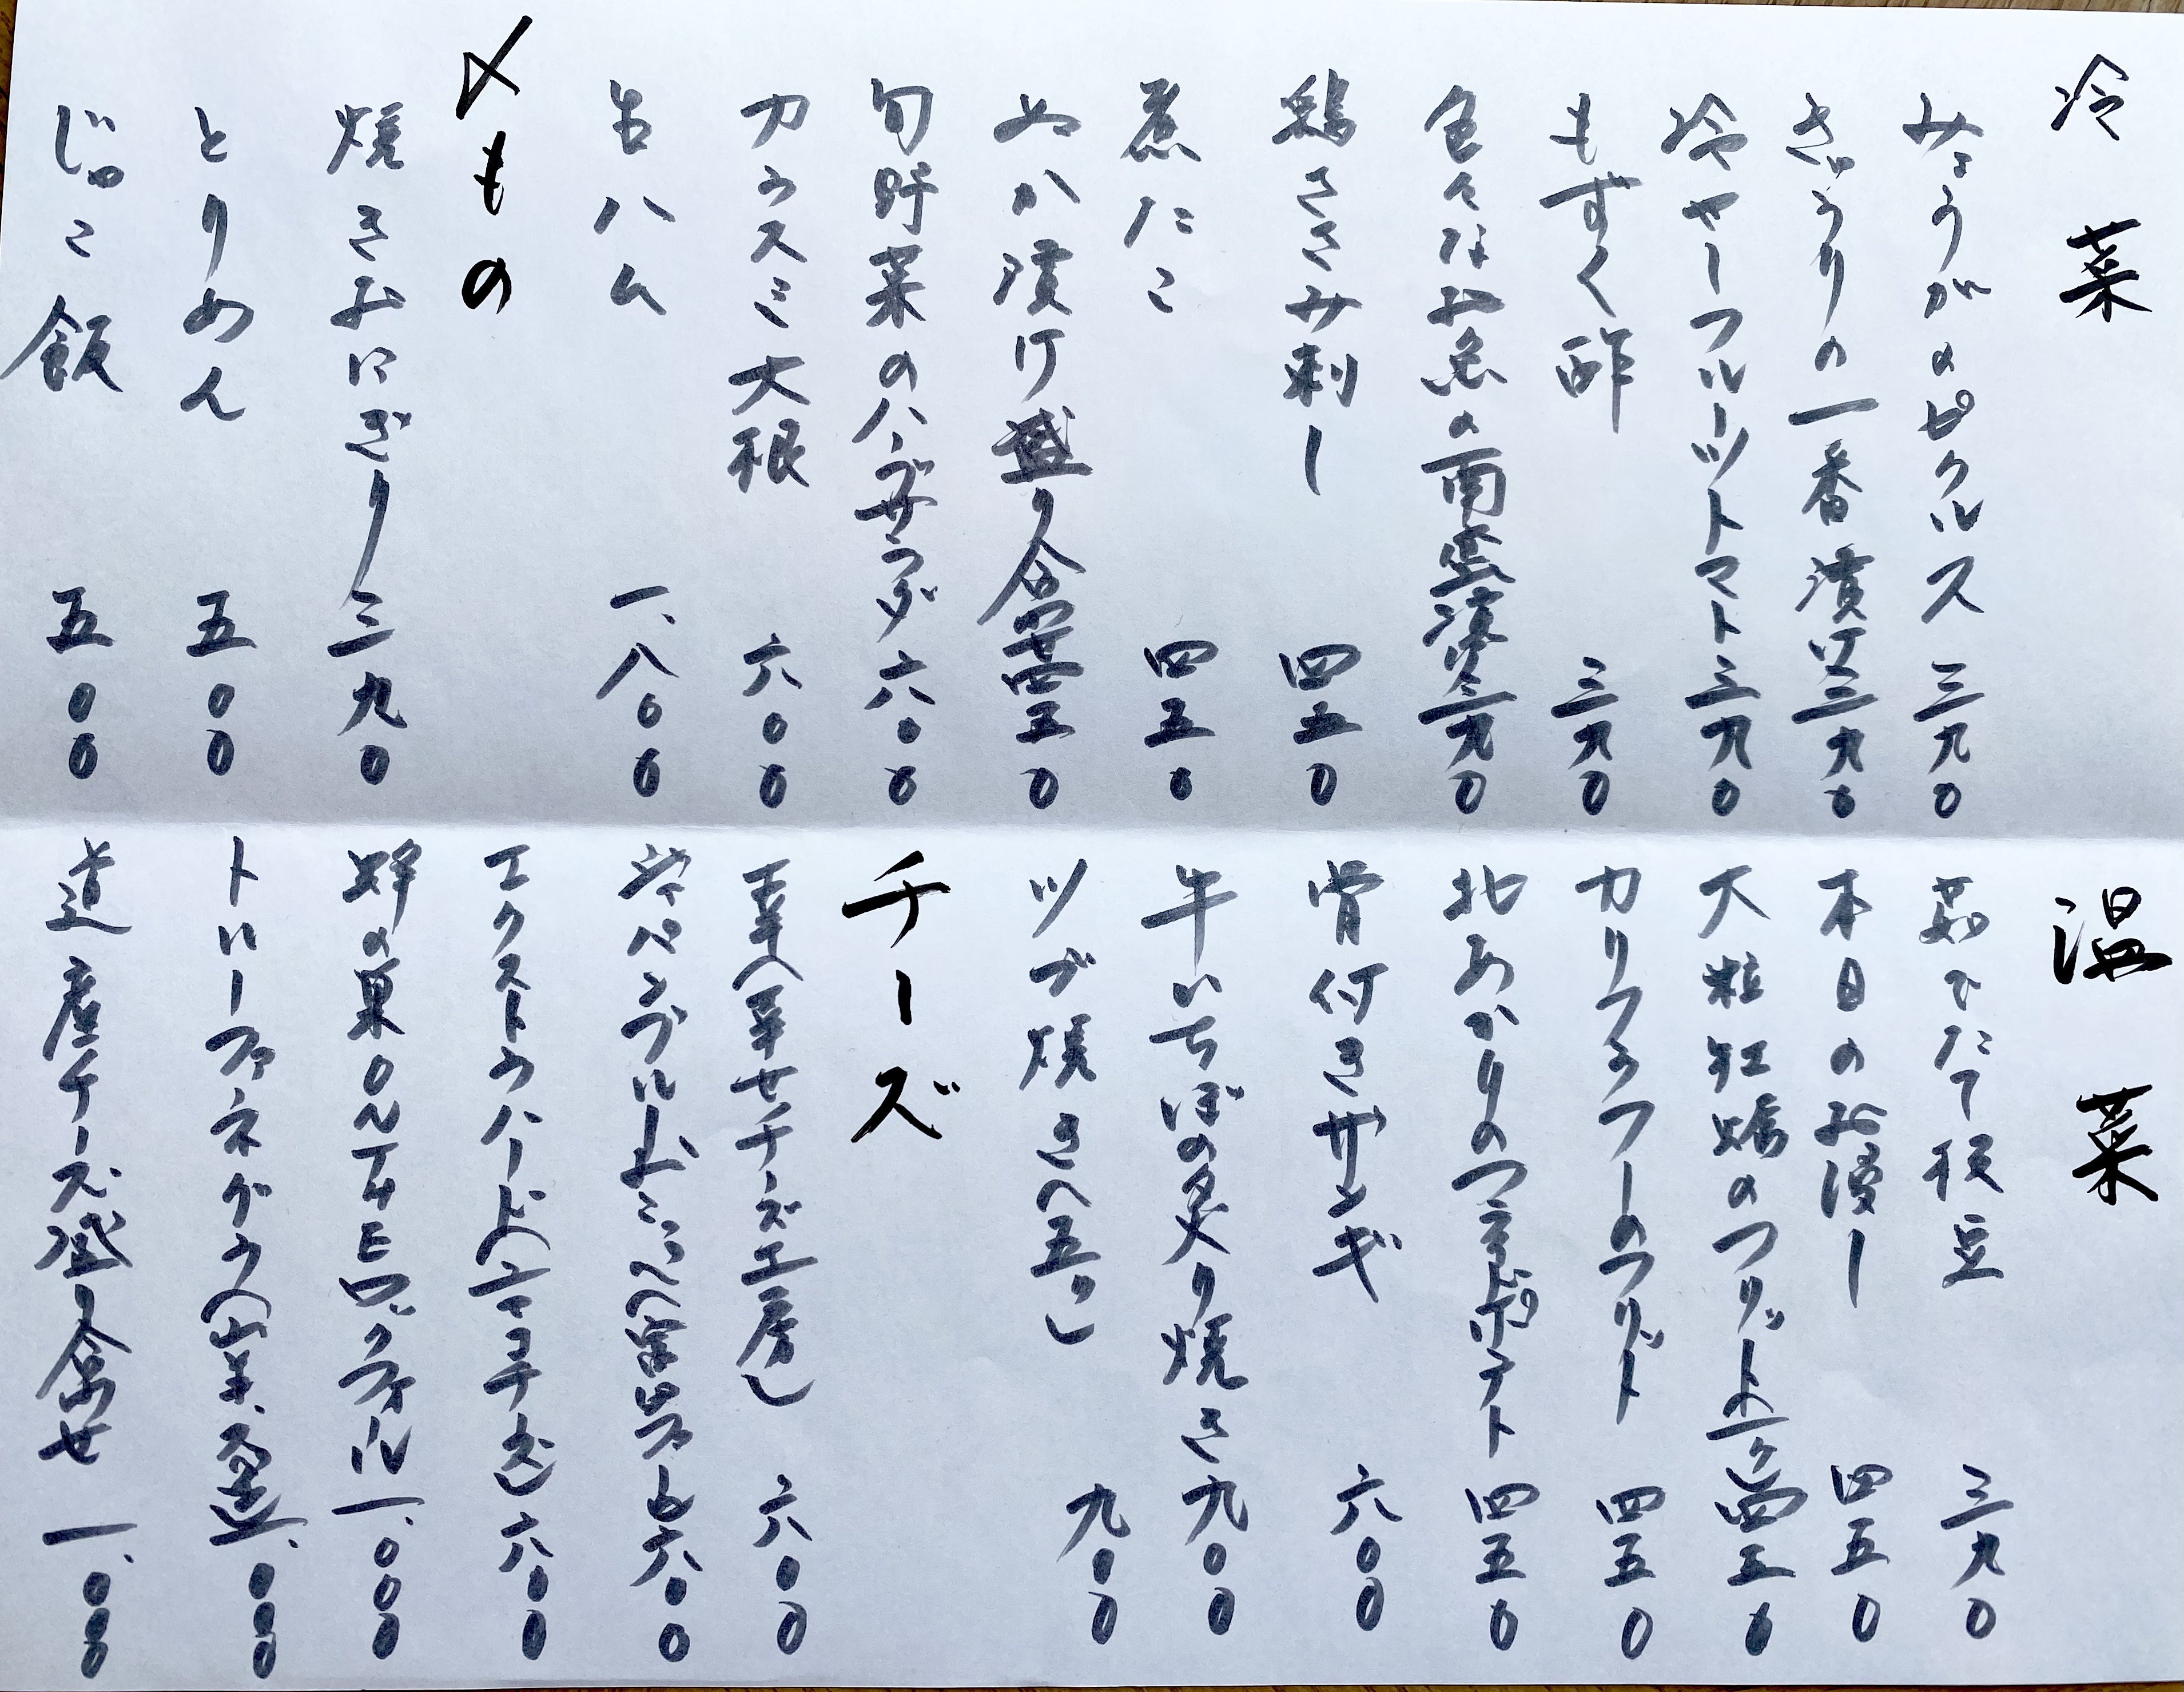 冷菜
みょうがのピクルス 三九〇
きゅうりの一番漬け 三九〇
冷やしフルーツトマト 三九〇
もずく酢 三九〇
色々なお魚の南蛮漬け 三九〇
鶏ささみ刺し 四五〇
煮たこ 四五〇
ぬか漬け盛り合わせ 四五〇
旬野菜のハーブサラダ 六〇〇
カラスミ大根 六〇〇
生ハム 一、八〇〇
〆もの
焼きおにぎり 三九〇
とりめん 五〇〇
じゃこ飯 五〇〇
温菜
茹でたて枝豆 三九〇
本日のお浸し 四五〇
大粒牡蠣のフリット(一ケ) 四五〇
カリフラワーのフリット 四五〇
北あかりのフライドポテト 四五〇
骨付きザンギ 六〇〇
牛いちぼの炙り焼き 九〇〇
ツブ焼き(五ケ) 九〇〇
チーズ
幸(幸せチーズ工房) 六〇〇
六〇〇
エクストラハード(ニセコチーズ) 六〇〇
蜂の巣 一、〇〇〇
一、〇〇〇
道産チーズ盛り合わせ 一、〇〇〇